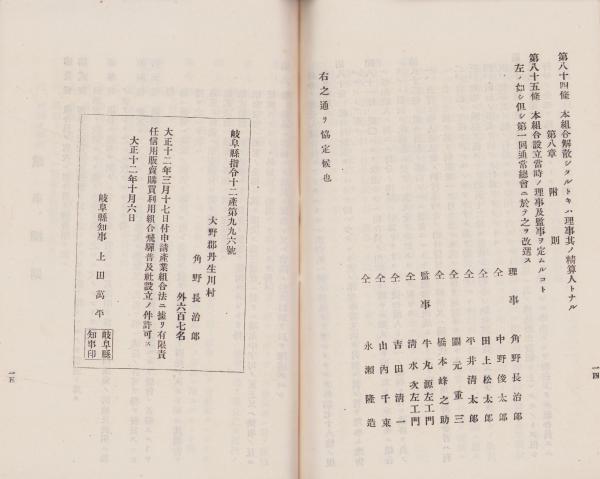 第八十四條 本組合解散シタルトキハ理事其ノ精算人トナル
第八章 附則
第八十五條 本組合設立當時ノ理事及監事ヲ定ムルコト
左ノ如シ但シ第一回通常總會ニ於テ之ヲ改選ス
理事 角野長治郎
仝 中野俊太郎
仝 田上松太郎
仝 平井清太郎
仝 關元重三
仝 橋本峰之助
監事 牛丸源左エ門
仝 清水次左エ門
仝 吉田清一
仝 山內千束
仝 永瀬隆造
右之通ヲ協定候也
一四
岐阜縣指令十二產第九九六號
大野郡丹生川村
角野長治郎
外六百七名
大正十二年三月十七日付申請產業組合法ニ據リ有限責
任信用販賣購買利用組合飛驒普及社設立ノ件許可ス
大正十二年十月六日
岐阜縣知事 上田萬平
岐阜縣
知事印
一五